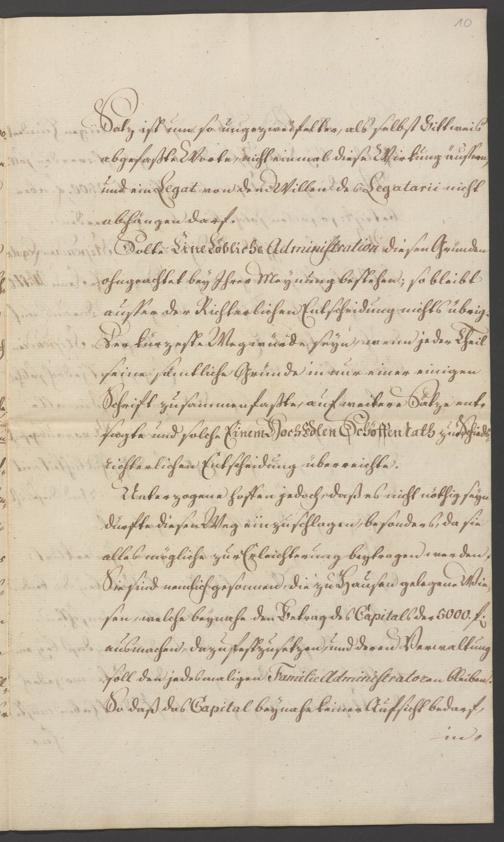 10
Satz ist um so ungezweifelter, als selbst bittweis
abgefaßte Worte, nicht einmal diese Wirkung äussern,
und ein Legat von dem Willen des Legatarii nicht
abhängen darf.
Solte Eine Löbliche Administration diesen Gründen
ohngeachtet bey Ihrer Meynung bestehen; so bleibt
ausser der Richterlichen Entscheidung nichts übrig.
Der kürzeste Weg würde seyn, wenn jeder Theil
seine sämtliche Gründe in nur einer einigen
Schrift zusammenfaßte, auf weitere Sätze ent-
sagte und solche Einem HochEdlen Schöffenrath zur Schieds-
richterlichen Entscheidung überreichte.
Unterzogene hoffen jedoch, daß es nicht nöthig seyn
dürfte diesen Weg einzuschlagen, besonders, da sie
alles mögliche zur Erleichterung beytragen werden.
Sie sind nemlich gesonnen, die zu Hausen gelegene Wie-
sen, welche beynahe den Betrag des Capitals der 5000. f.
ausmachen, dazu festzusetzen, und deren Verwaltung
soll den jedesmaligen Familie Administratoren bleiben.
So daß das Capital beynahe keiner Aufsicht bedarf,
in